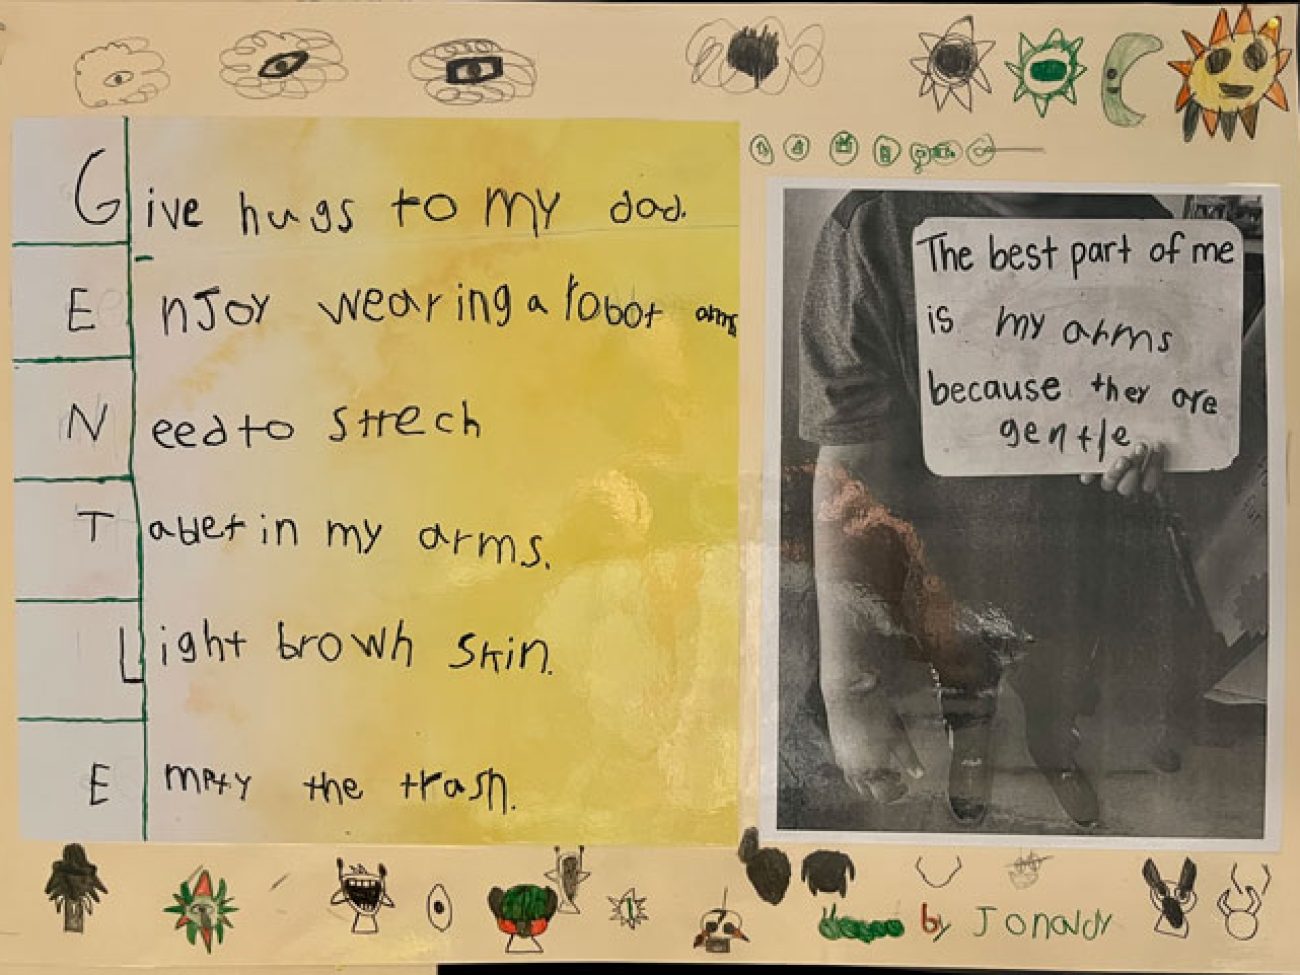 Give hugs to my dad.
EnJoy wearing a robot arms
Need to strech
in my arms.
Light brown skin.
Empty the trash.
The best part of me
is my arms
because they are
gentle
by Jonaldy